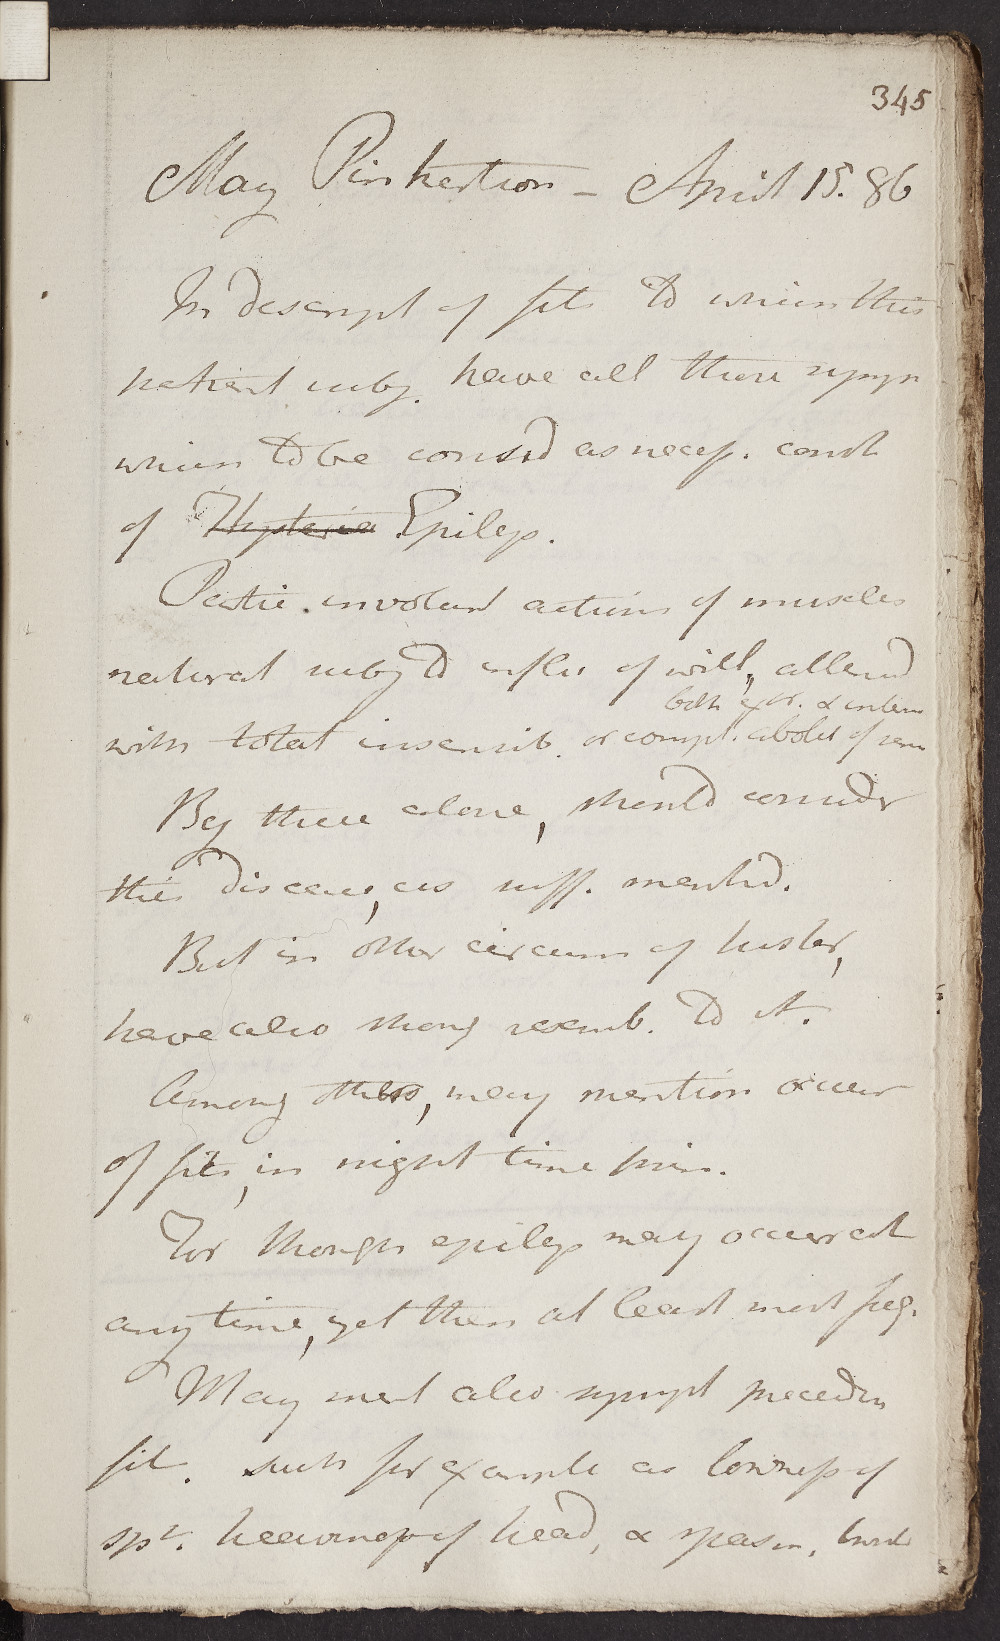 345
May Pinkerton – April 15. 86
In descript of fits to which this
patient subj. have all those symp
which to be consid as necess. const
of Hysteria Epileps.
Partic. involunt actions of muscles
natural subj to influ of will, attend
both ext. & intern
with total insensib. or compl. abolit of sens
By these alone, should consider
this disease, as suff. markd.
But in other circum of histor,
have also strong resemb. to it.
Among these, may mention occur
of fits, in night time prin.
For though epileps may occur at
any time, yet then at least most freq.
May ment also sympt precedin
fit. such for example as lowness of
spt. heaviness of head, & spasm,